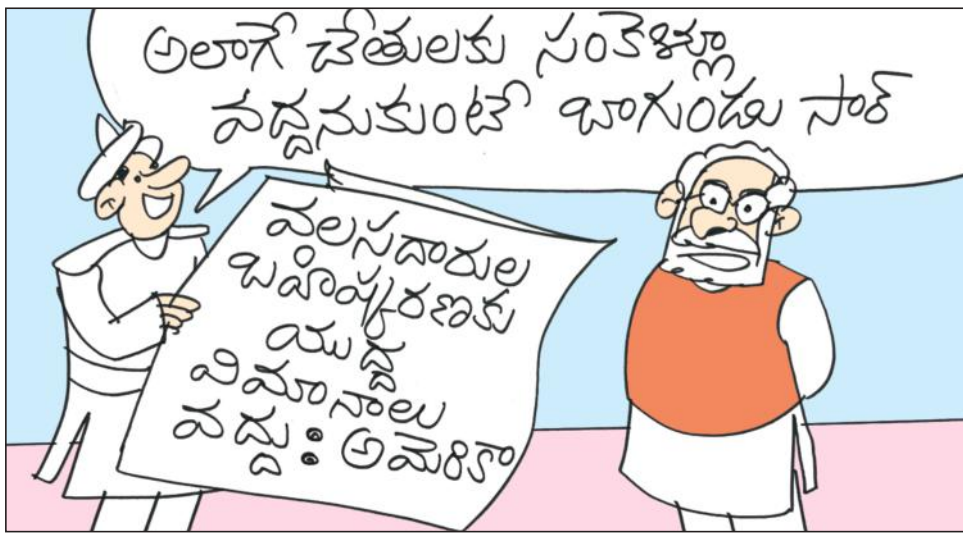 అలాగే చేతులకు సంకెళ్ళూ
వద్దనుకుంటే బాగుండు సార్
వలసదారుల
బహిష్కరణకు
యుద్ధ
విమానాలు
వద్దు: అమెరికా